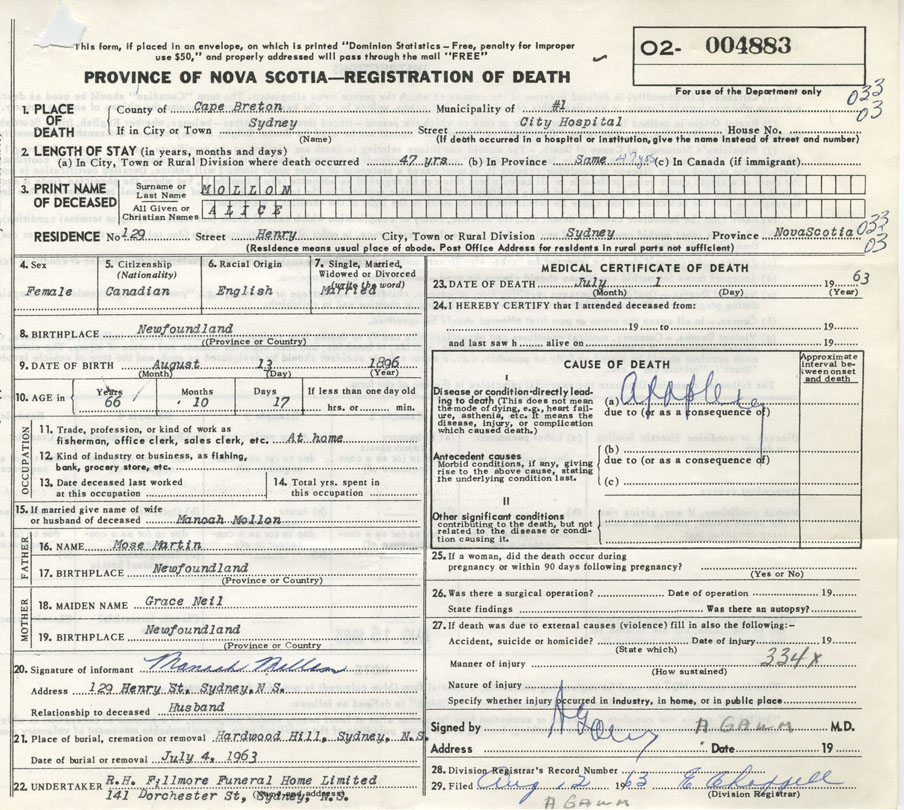 This form, if placed in an envelope, on which is printed "Dominion Statistics – Free, penalty for improper
use $50," and properly addressed will pass through the mail "FREE"
O2- 004883
PROVINCE OF NOVA SCOTIA—REGISTRATION OF DEATH
For use of the Department only
033
03
1. PLACE OF DEATH
County of Cape Breton Municipality of #1
If in City or Town Sydney Street City Hospital House No.
(Name) (If death occurred in a hospital or institution, give the name instead of street and number)
2. LENGTH OF STAY (in years, months and days)
(a) In City, Town or Rural Division where death occurred 47 yrs (b) In Province Same 47 yrs (c) In Canada (if immigrant)
3. PRINT NAME OF DECEASED
Surname or Last Name MOLLON
All Given or Christian Names ALICE
RESIDENCE No 129 Street Henry City, Town or Rural Division Sydney Province NovaScotia 033
03
(Residence means usual place of abode. Post Office Address for residents in rural parts not sufficient)
4. Sex
Female
5. Citizenship
(Nationality)
Canadian
6. Racial Origin
English
7. Single, Married,
Widowed or Divorced
(write the word)
Married
8. BIRTHPLACE Newfoundland
((Province or Country)
9. DATE OF BIRTH August 13 1896
(Month) (Day) (Year)
10. AGE in
Years Months Days If less than one day old
66 10 17 hrs. or min.
OCCUPATION
11. Trade, profession, or kind of work as
fisherman, office clerk, sales clerk, etc. At home
12. Kind of industry or business, as fishing,
bank, grocery store, etc.
13. Date deceased last worked
at this occupation
14. Total yrs. spent in
this occupation
15. If married give name of wife
or husband of deceased Manoah Mollon
FATHER
16. NAME Mose Martin
17. BIRTHPLACE Newfoundland
(Province or Country)
MOTHER
18. MAIDEN NAME Grace Neil
19. BIRTHPLACE Newfoundland
(Province or Country
20. Signature of informant Manoah Mollon
Address 129 Henry St, Sydney, N S.
Relationship to deceased Husband
21. Place of burial, cremation or removal Hardwood Hill, Sydney, N.S.
Date of burial or removal July 4, 1963
22. UNDERTAKER R.H. Fillmore Funeral Home Limited
141 Dorchester St, Sydney, N.S.
MEDICAL CERTIFICATE OF DEATH
23. DATE OF DEATH July 1 19 63
(Month) (Day) (Year)
24. I HEREBY CERTIFY that I attended deceased from:
19 to 19
and last saw h alive on 19
CAUSE OF DEATH
Approximate
interval be-
tween onset
and death
I
Disease or condition directly lead-
ing to death (This does not mean
the mode of dying, e.g., heart fail-
ure, asthenia, etc. It means the
disease, injury, or complication
which caused death.)
(a) Apoplexy
due to (or as a consequence of)
Antecedent causes
Morbid conditions, if any, giving
rise to the above cause, stating
the underlying condition last.
(b)
due to (or as a consequence of)
(c)
II
Other significant conditions
contributing to the death, but not
related to the disease or condi-
tion causing it.
25. If a woman, did the death occur during
pregnancy or within 90 days following pregnancy?
(Yes or No)
26. Was there a surgical operation? Date of operation 19
State findings Was there an autopsy?
27. If death was due to external causes (violence) fill in also the following:–
Accident, suicide or homicide? Date of injury 19
(State which)
Manner of injury 334X
(How sustained)
Nature of injury
Specify whether injury occurred in industry, in home, or in public place
Signed by A Gaum A GAUM M.D.
Address Date 19
28. Division Registrar's Record Number
29. Filed Aug 12 1963
(Division Registrar)
A GAUM